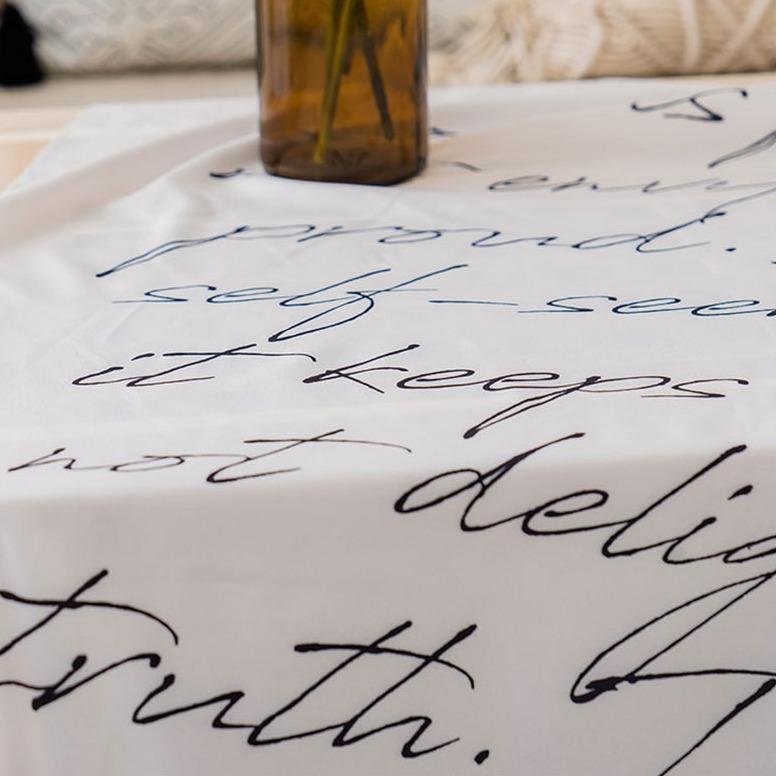 envy
proud.
self-see
it keeps
not delig
truth.